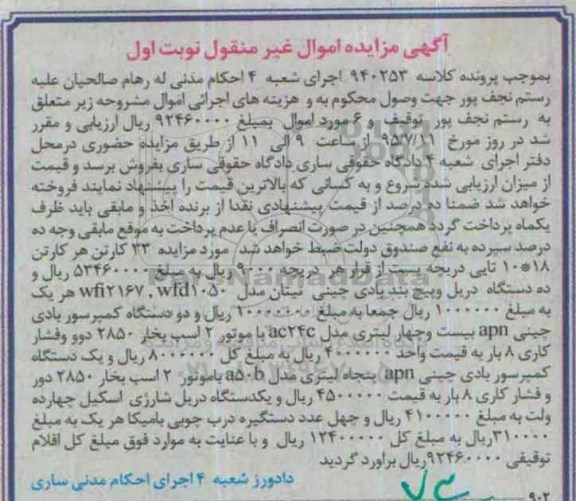 آگهی مزایده اموال غیر منقول نوبت اول
بموجب پرونده کلاسه ۹۴۰۲۵۳ اجرای شعبه ۴ احکام مدنی له رهام صالحیان علیه
رستم نجف پور جهت وصول محکوم به و هزینه های اجرائی اموال مشروحه زیر متعلق
به رستم نجف پور توقیف و ۶ مورد اموال بمبلغ ۹۲۴۶۰۰۰۰ ریال ارزیابی و مقرر
شد در روز مورخ ساعت ۹ الی ۱۱ از طریق مزایده حضوری درمحل
دفتر اجرای شعبه ۴ دادگاه حقوقی ساری دادگاه حقوقی ساری بفروش برسد و قیمت
از میزان ارزیابی شده شروع و به کسانی که بالاترین قیمت را پیشنهاد نمایند فروخته
خواهد شد ضمنا ده درصد از قیمت پیشنهادی نقدا از برنده اخذ و مابقی باید ظرف
یکماه پرداخت گردد همچنین در صورت انصراف یا عدم پرداخت به موقع مابقی وجه ده
درصد سپرده به نفع صندوق دولت ضبط خواهد شد مورد مزایده ۳۳ کارتن هر کارتن
۱۰*۱۸ تایی دریچه پست از قرار هر دریچه ۹۰۰۰ ریال به مبلغ ۵۳۴۶۰۰۰۰ ریال و
ده دستگاه دریل وپیچ بند بادی چینی نیتان مدل wfi۲۱۶۷ , wfd۱۰۵۰ هر یک
به مبلغ ۱۰۰۰۰۰۰ ریال جمعا به مبلغ ۱۰۰۰۰۰۰۰ ریال و دو دستگاه کمپرسور بادی
چینی apn بیست وچهار لیتری مدل ac۲۴c با موتور ۲ اسب بخار ۲۸۵۰ دوو وفشار
کاری ۸ بار به قیمت واحد ۴۰۰۰۰۰۰ ریال به مبلغ کل ۸۰۰۰۰۰۰ ریال و یک دستگاه
کمپرسور بادی چینی apn پنجاه لیتری مدل a۵۰b باموتور ۲ اسب بخار ۲۸۵۰ دور
و فشار کاری ۸ بار به قیمت ۴۵۰۰۰۰۰ ریال و یکدستگاه دریل شارژی اسکیل چهارده
ولت به مبلغ ۴۱۰۰۰۰۰ ریال و چهل عدد دستگیره درب چوبی بامیکا هر یک به مبلغ
۳۱۰۰۰۰ریال به مبلغ کل ۱۲۴۰۰۰۰۰ ریال و با عنایت به موارد فوق مبلغ کل اقلام
توقیفی ۹۲۴۶۰۰۰۰ریال براورد گردید
دادورز شعبه ۴ اجرای احکام مدنی ساری
۹۰۲